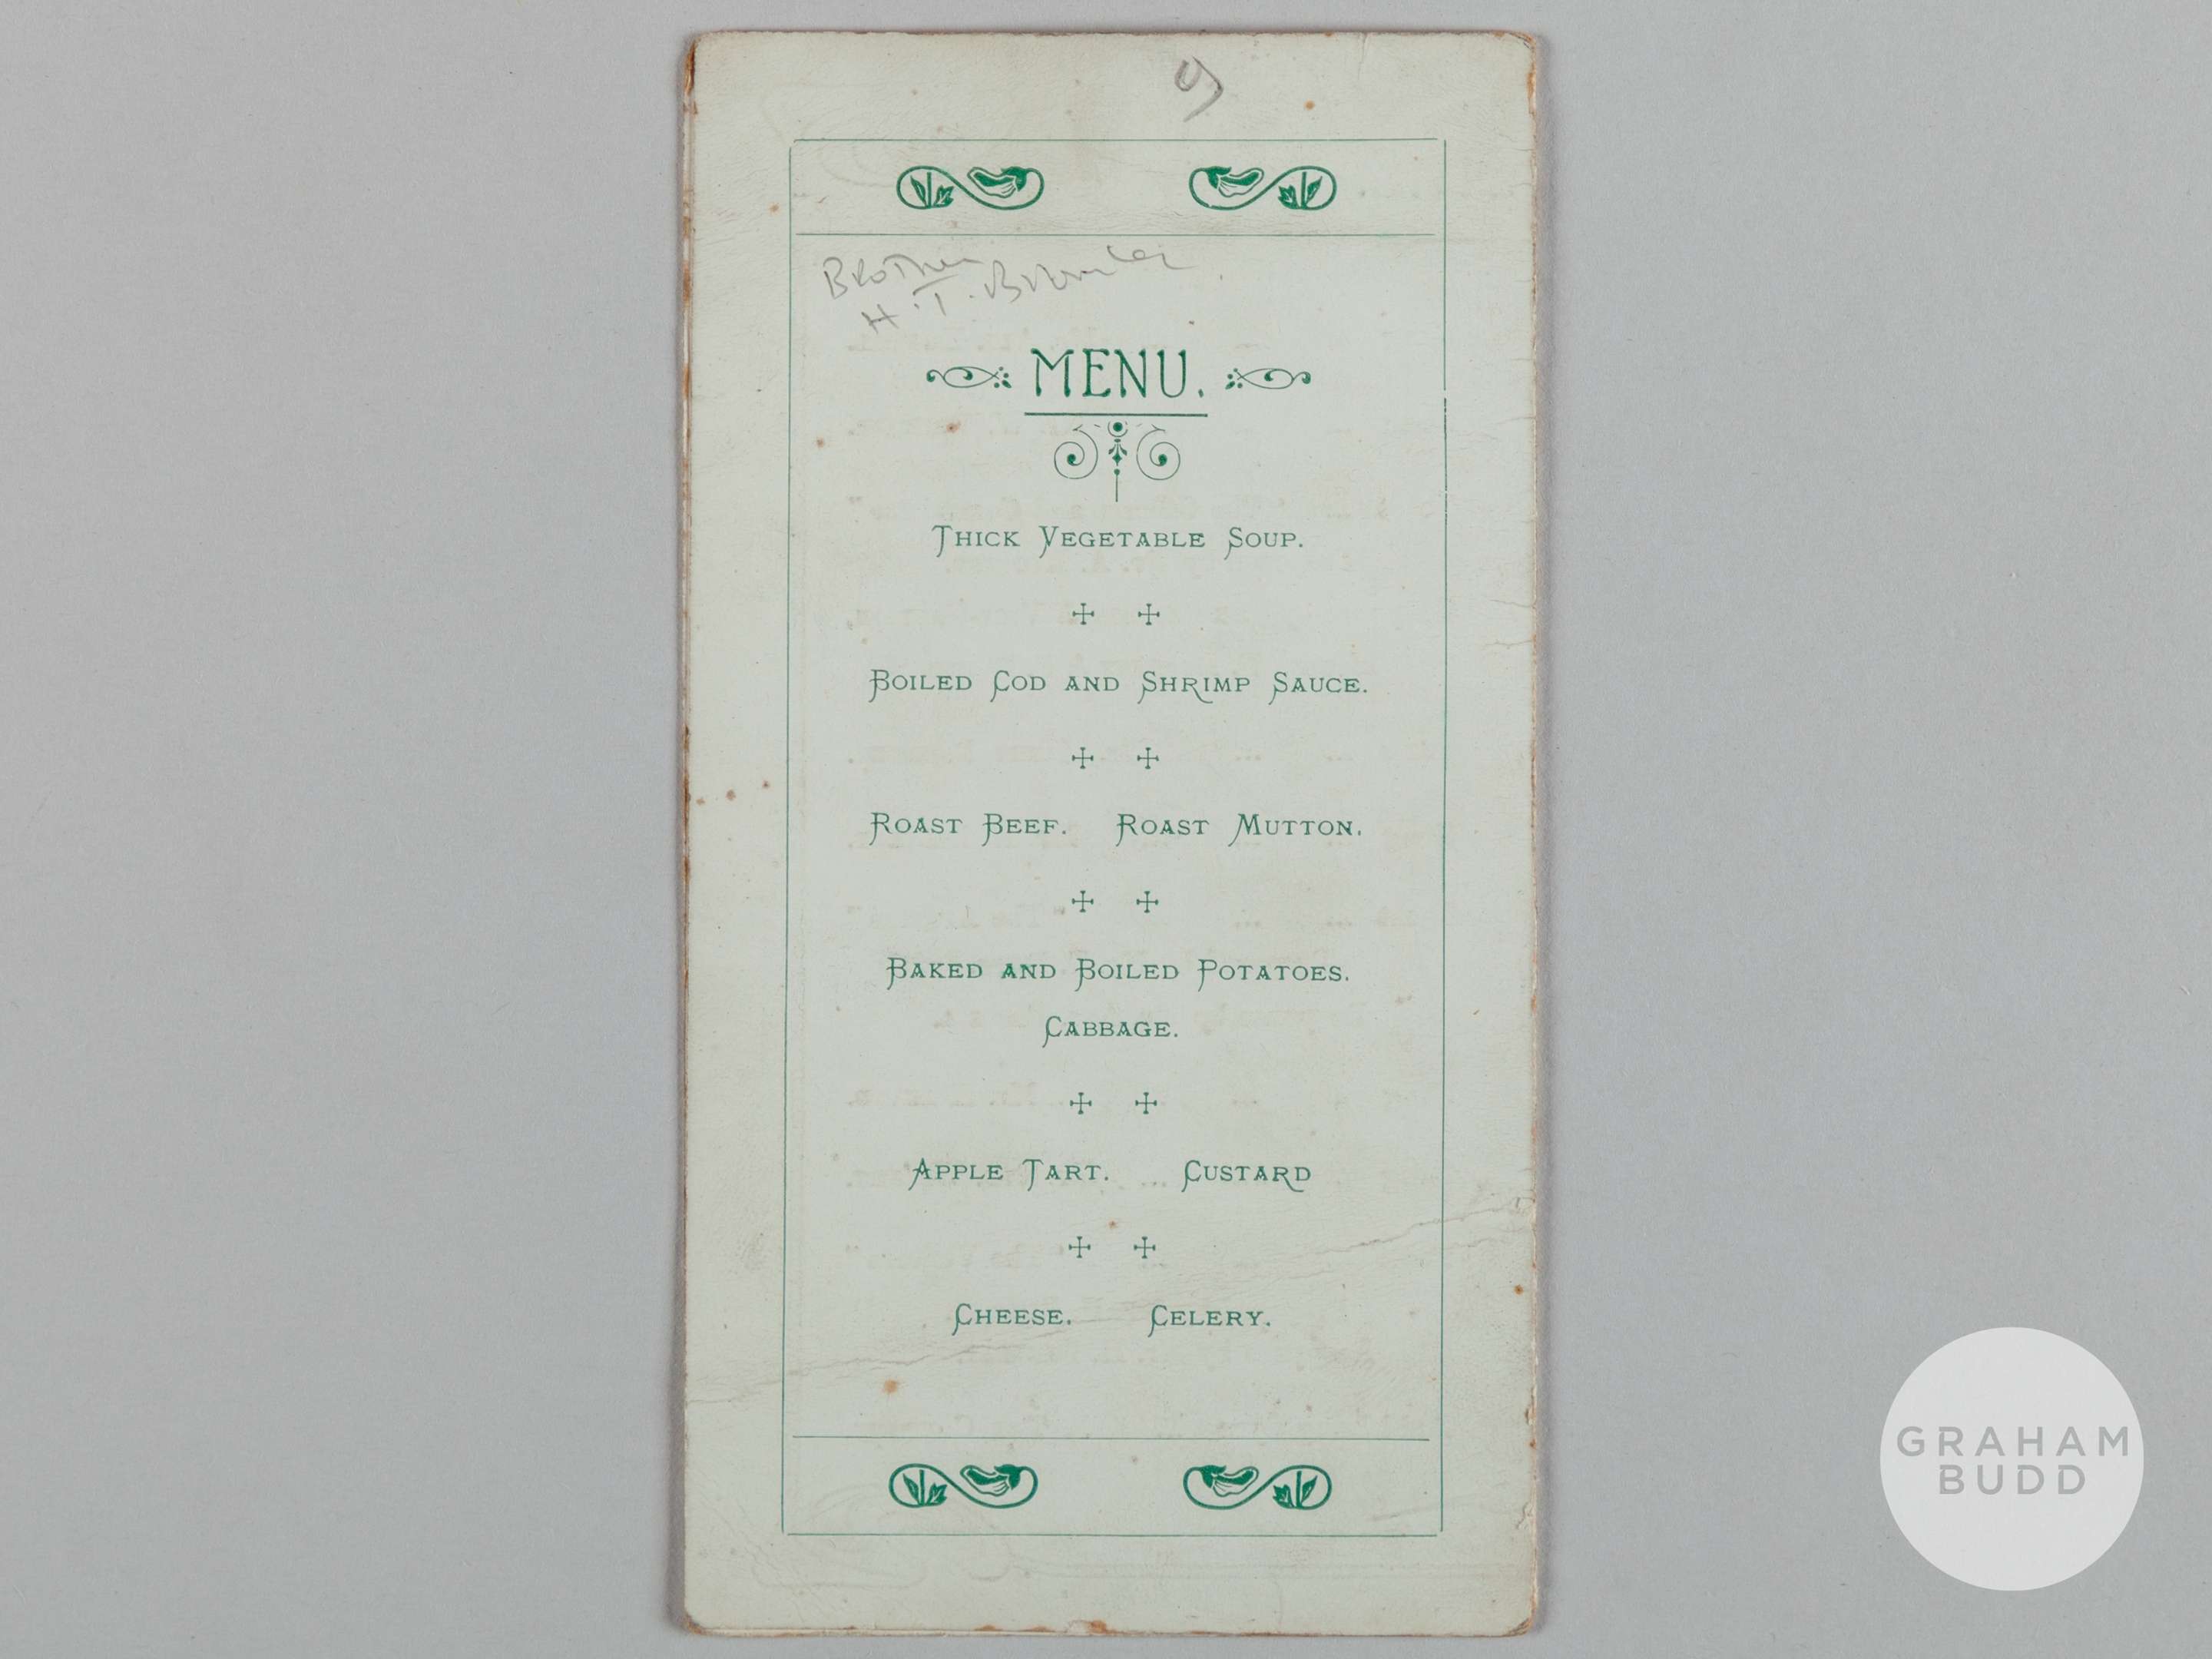 Brother
H. T.
MENU.
THICK VEGETABLE SOUP.
BOILED COD AND SHRIMP SAUCE.
ROAST BEEF. ROAST MUTTON.
BAKED AND BOILED POTATOES.
CABBAGE.
APPLE TART. ... CUSTARD
CHEESE. CELERY.
GRAHAM
BUDD